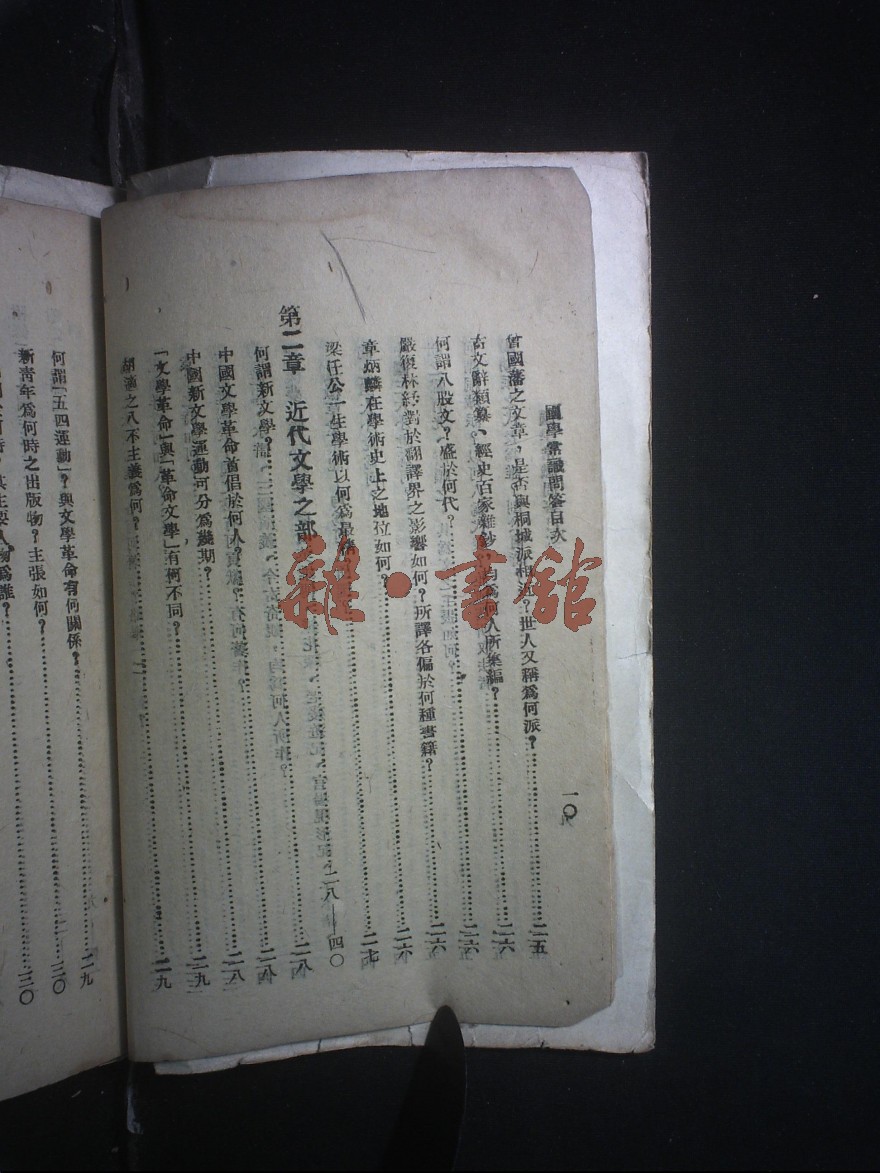 國學常識問答目次
一〇
曾國藩之文章，是否與桐城派相近？世人又稱爲何派？……二五
古文辭類纂、經史百家雜鈔，均爲何人所集編？……二六
何謂八股文？盛於何代？……二六
嚴復林紓對於翻譯界之影響如何？所譯各偏於何種書籍？……二六
章炳麟在學術史上之地位如何？……二七
梁任公一生學術以何爲最精
第二章 近代文學之部……二八——四〇
何謂新文學？……二八
中國文學革命首倡於何人？……二八
中國新文學運動可分爲幾期？……二九
「文學革命」與「革命文學」有何不同？……二九
胡適之八不主義爲何？
何謂「五四運動」？與文學革命有何關係？……二九
新靑年爲何時之出版物？主張如何？……三〇
其主要人物爲誰？……三〇
雜·書館